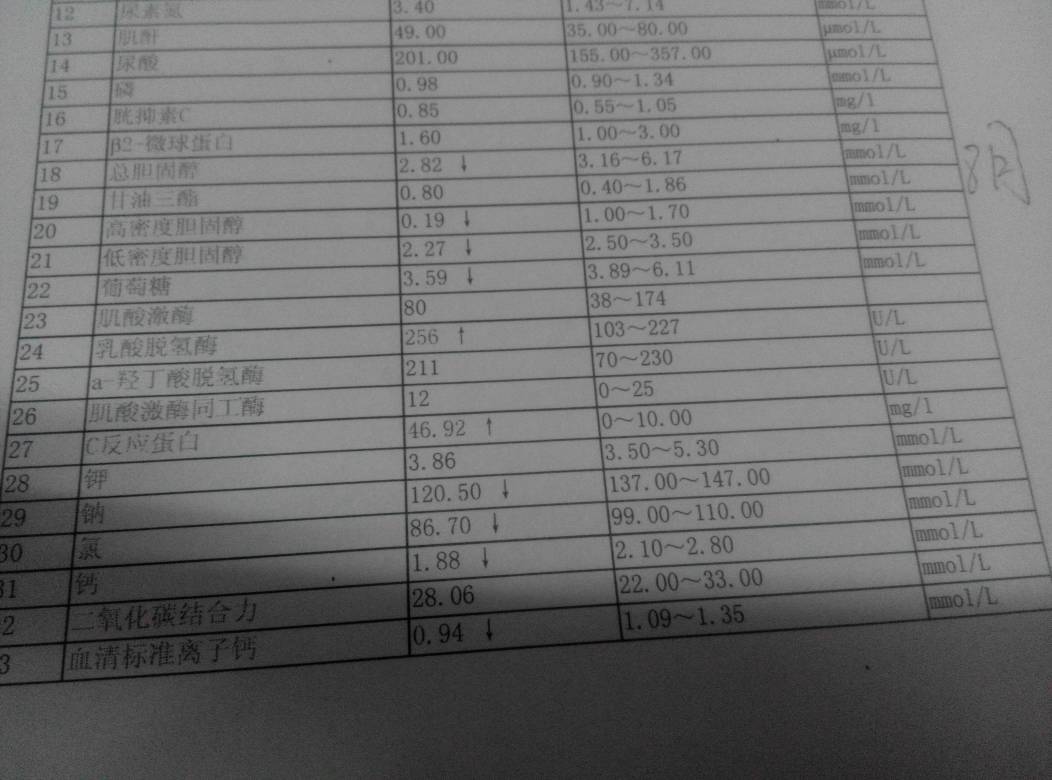 12 尿素氮 3.40 1.43～7.14 mmol/L
13 肌酐 49.00 35.00～80.00 μmol/L
14 尿酸 201.00 155.00～357.00 μmol/L
15 磷 0.98 0.90～1.34 mmol/L
16 胱抑素C 0.85 0.55～1.05 mg/l
17 β2-微球蛋白 1.60 1.00～3.00 mg/l
18 总胆固醇 2.82 ↓ 3.16～6.17 mmol/L
19 甘油三酯 0.80 0.40～1.86 mmol/L
20 高密度胆固醇 0.19 ↓ 1.00～1.70 mmol/L
21 低密度胆固醇 2.27 ↓ 2.50～3.50 mmol/L
22 葡萄糖 3.59 ↓ 3.89～6.11 mmol/L
23 肌酸激酶 80 38～174
24 乳酸脱氢酶 256 ↑ 103～227 U/L
25 a-羟丁酸脱氢酶 211 70～230 U/L
26 肌酸激酶同工酶 12 0～25 U/L
27 C反应蛋白 46.92 ↑ 0～10.00 mg/l
28 钾 3.86 3.50～5.30 mmol/L
29 钠 120.50 ↓ 137.00～147.00 mmol/L
30 氯 86.70 ↓ 99.00～110.00 mmol/L
31 钙 1.88 ↓ 2.10～2.80 mmol/L
2 二氧化碳结合力 28.06 22.00～33.00 mmol/L
3 血清标准离子钙 0.94 ↓ 1.09～1.35 mmol/L
8月